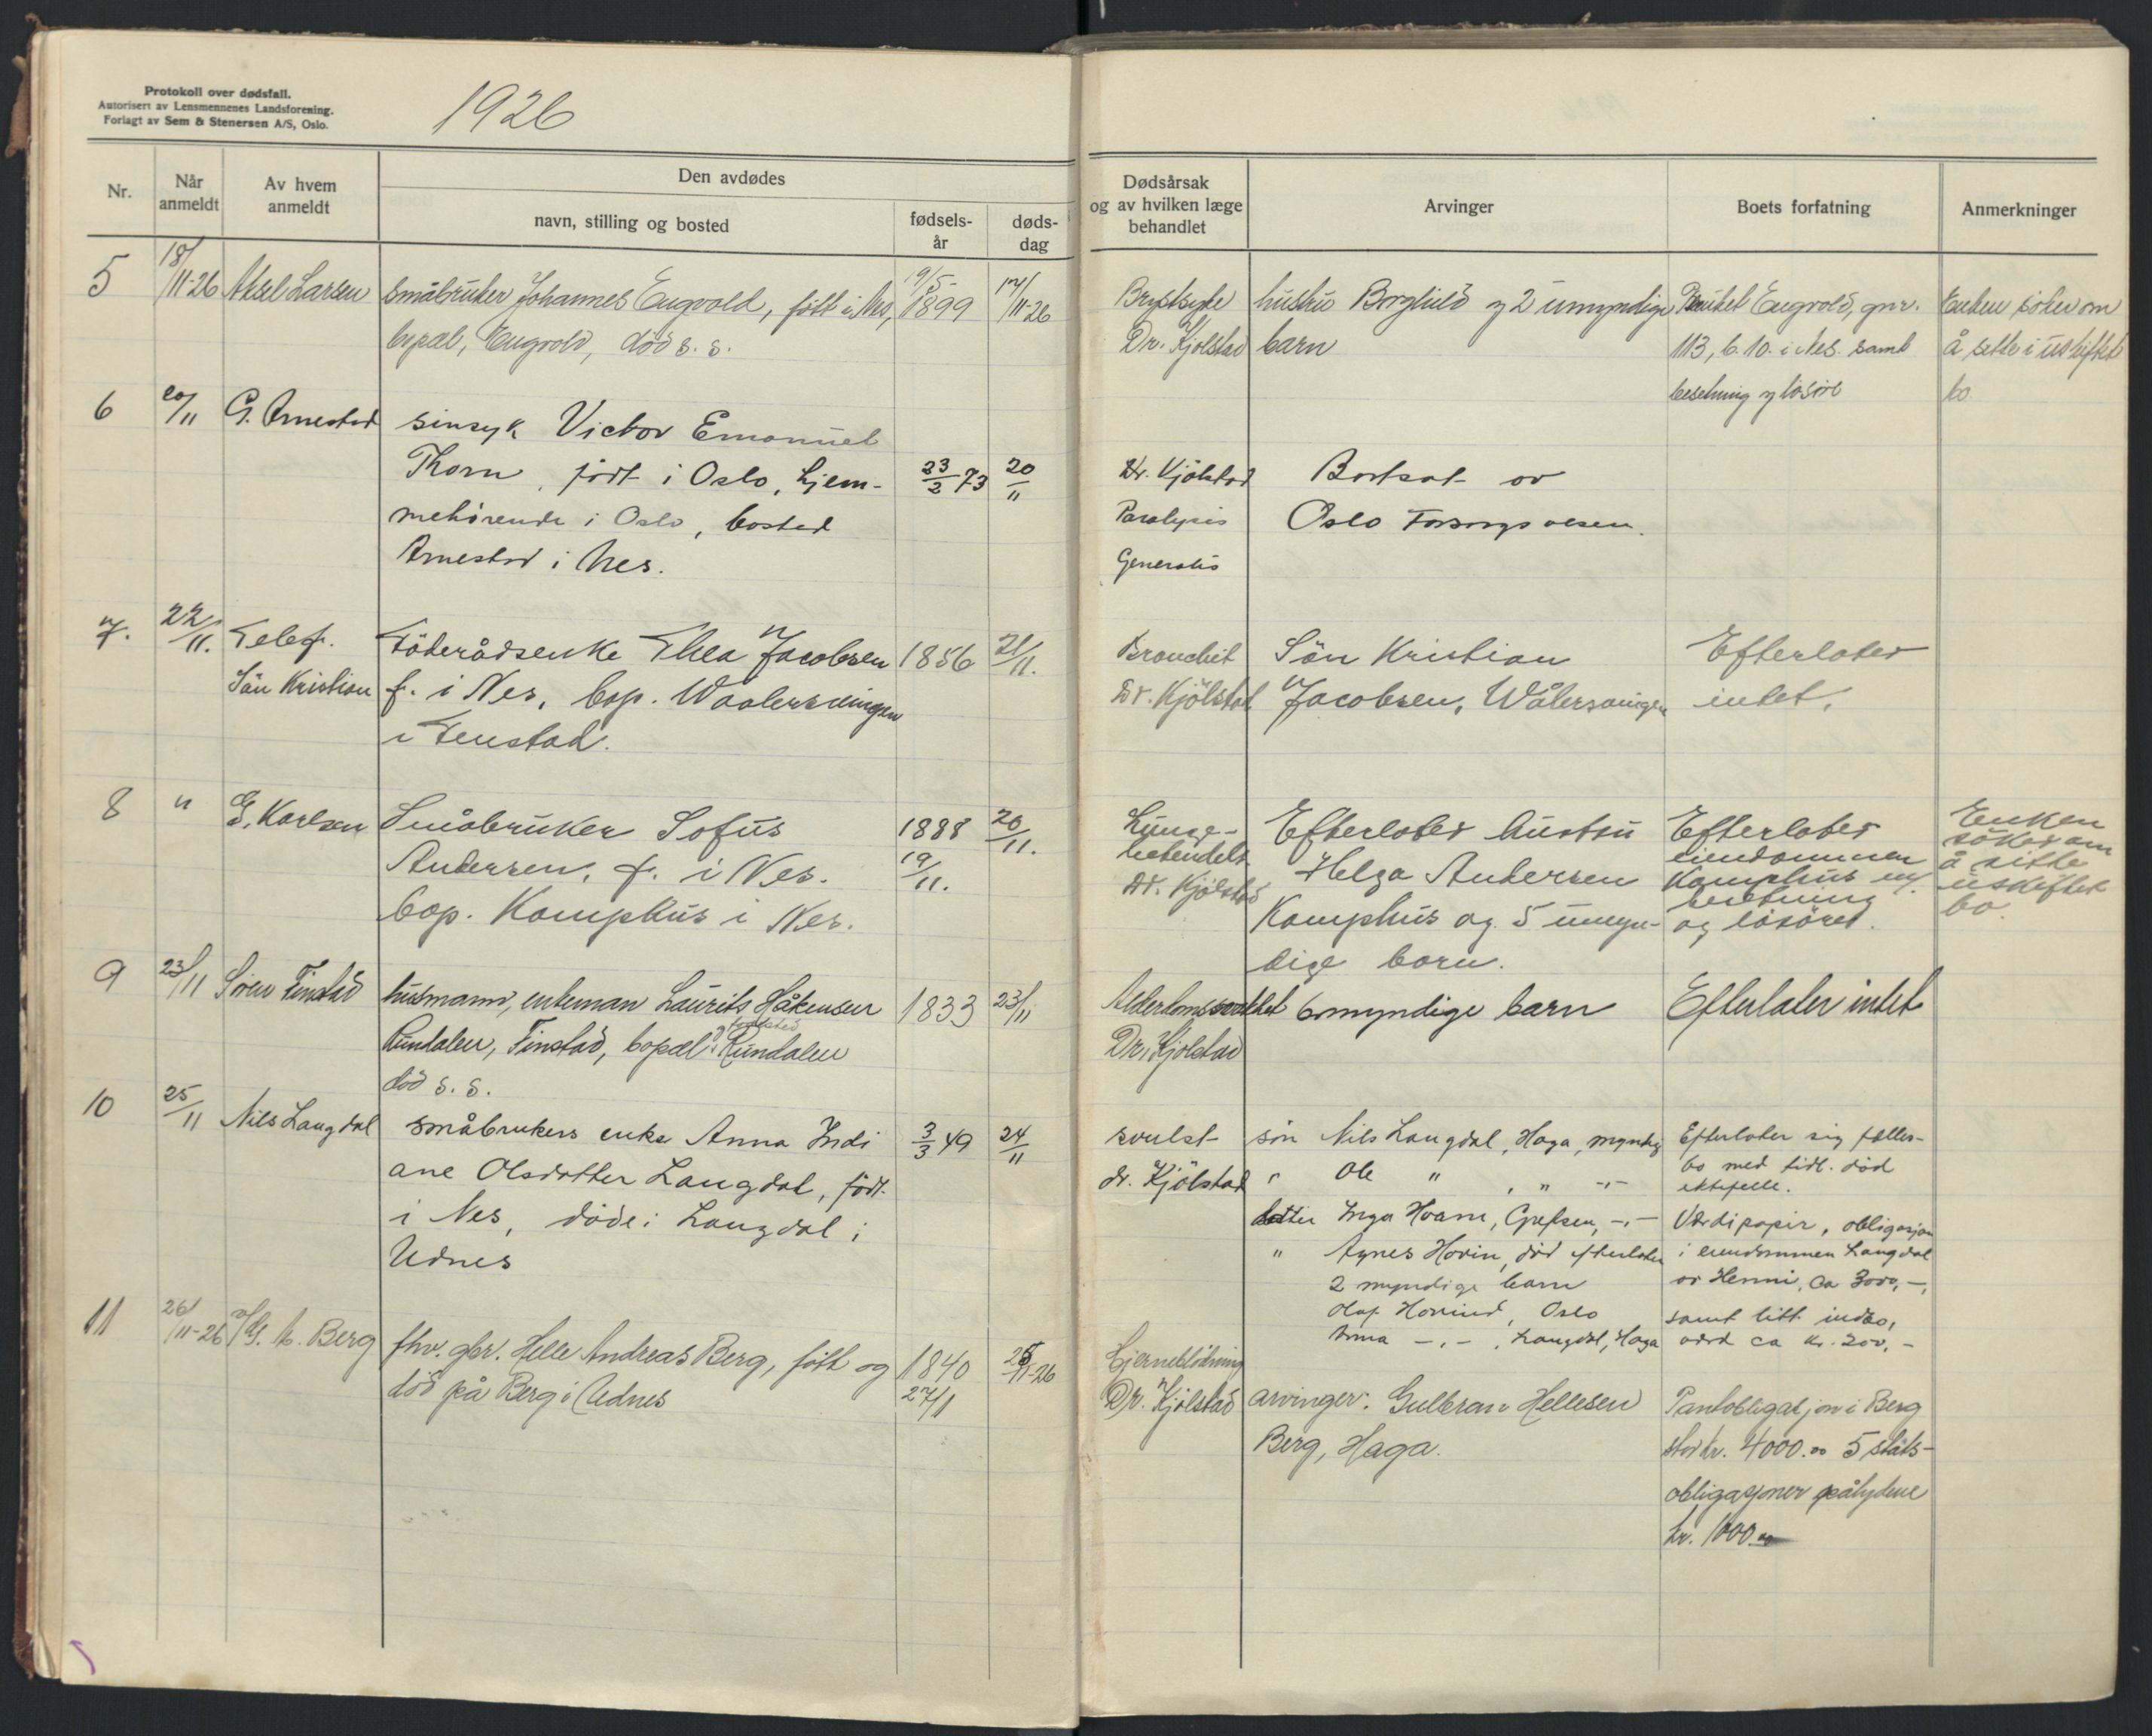 Protokoll over dødsfall.
Autorisert av Lensmennenes Landsforening.
Forlagt av Sem & Stenersen A/S, Oslo.
1926
Nr.
Når anmeldt
Av hvem anmeldt
Den avdødes
navn, stilling og bosted
fødsels-år
døds-dag
Dødsårsak og av hvilken læge behandlet
Arvinger
Boets forfatning
Anmerkninger
5
18/11-26
Aksel Larsen
småbruker Johannes Engvold, født i Nes,
bopæl, Engvold, död s. s.
19/5-
1899
17/11-26
Brystsyke
Dr. Kjølstad
hustru Borghild og 2 umyndige
barn
Bruket Engvold, gnr.
113, b. 10. i Nes. samt
besetning og løsøre
Enken søker om
å sitte i uskiftet
bo
6
20/11
G. Arnestad
sinsyk Victor Emanuel
Thorn, født i Oslo, hjem-
mehörende i Oslo, bosted
Arnestad i Nes.
23/2 73
20/11
Dr. Kjölstad
Paralysis
Generalis
Bortsat av
Oslo Forsorgsvesen.
7.
22/11.
Telef.
Sön Kristian
Föderådsenke Thea Jacobsen
f. i Nes, bop. Waalersvingen
i Fenstad.
1856
21/11.
Bronchit
Dr. Kjölstad
Sön Kristian
Jacobsen, Wålersvingen
Efterlater
intet.
8
"
G. Karlsen
Småbruker Sofus
Andersen, f. i Nes.
bop. Kamphus i Nes.
1888
19/11.
20/11.
Lunge-
betendelse
Dr. Kjölstad
Efterlater hustru
Helga Andersen
Kamphus og 5 umyn-
dige barn.
Efterlater
eiendommen
Kamphus m/
besetning
og lösöret.
Enken
söker om
å sitte
uskiftet
bo.
9
23/11
Sören Finstad
husmann, enkeman Laurits Håkensen
Rundalen, Finstad, bopæl Rundalen
död s. s.
1833
23/11
Alderdomssvakhet
Dr. Kjølstad
6 myndige barn
Efterlater intet
10
25/11
Nils Langdal
småbrukers enke Anna Indi
ane Olsdatter Langdal, født
i Nes, döde i Langdal i
Udnes
3/3 49
24/11
svulst
dr. Kjölstad
sön Nils Langdal, Haga, myndig
" Ole " , " -,-
datter Inga Hoam, Grefsen, -,-
" Agnes Hovin, död efterlater
2 myndige barn
Olaf Hovind, Oslo
Anna -,- , Langdal, Haga
Efterlater sig fælles-
bo med tidl. død
ektefelle.
Værdipapir, obligasjon
i eiendommen Langdal
av Henni, ca 3000,-,
samt litt indbo,
værd ca kr. 200,-
11
26/11-26
v/G. H. Berg
fhv. gbr. Helle Andreas Berg, født og
död på Berg i Udnes
1840
27/1
25/11-26
Hjerneblödning
Dr. Kjölstad
arvinger: Gulbran Hellesen
Berg, Haga.
Pantobligasjon i Berg
stor kr. 4000.00 5 stats-
obligasjoner pålydene
kr. 1000.00